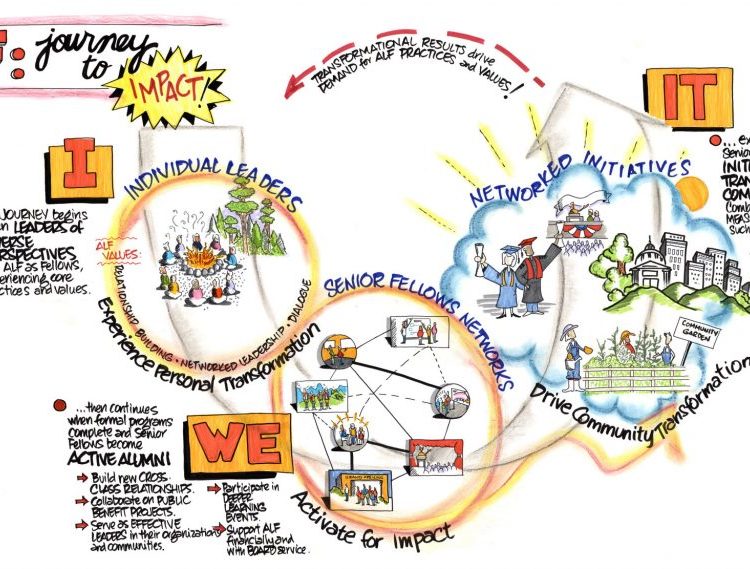 journey
to
IMPACT!
TRANSFORMATIONAL RESULTS drive
DEMAND for ALF PRACTICES and VALUES!
I
JOURNEY begins
LEADERS of
ALF as Fellows,
core
and values.
INDIVIDUAL LEADERS
ALF
VALUES:
RELATIONSHIP BUILDING • NETWORKED LEADERSHIP • DIALOGUE
Experience Personal Transformation
WE
...then continues
when formal programs
complete and Senior
Fellows become
ACTIVE ALUMNI
→ Build new CROSS-
CLASS RELATIONSHIPS.
→ Collaborate on PUBLIC
BENEFIT PROJECTS.
→ Serve as EFFECTIVE
LEADERS in their organizations
and communities.
→ Participate in
DEEPER
LEARNING
EVENTS.
→ Support ALF
financially and
with BOARD service.
SENIOR FELLOWS NETWORKS
Activate for Impact
IT
NETWORKED INITIATIVES
COMMUNITY
GARDEN
Drive Community Transformation